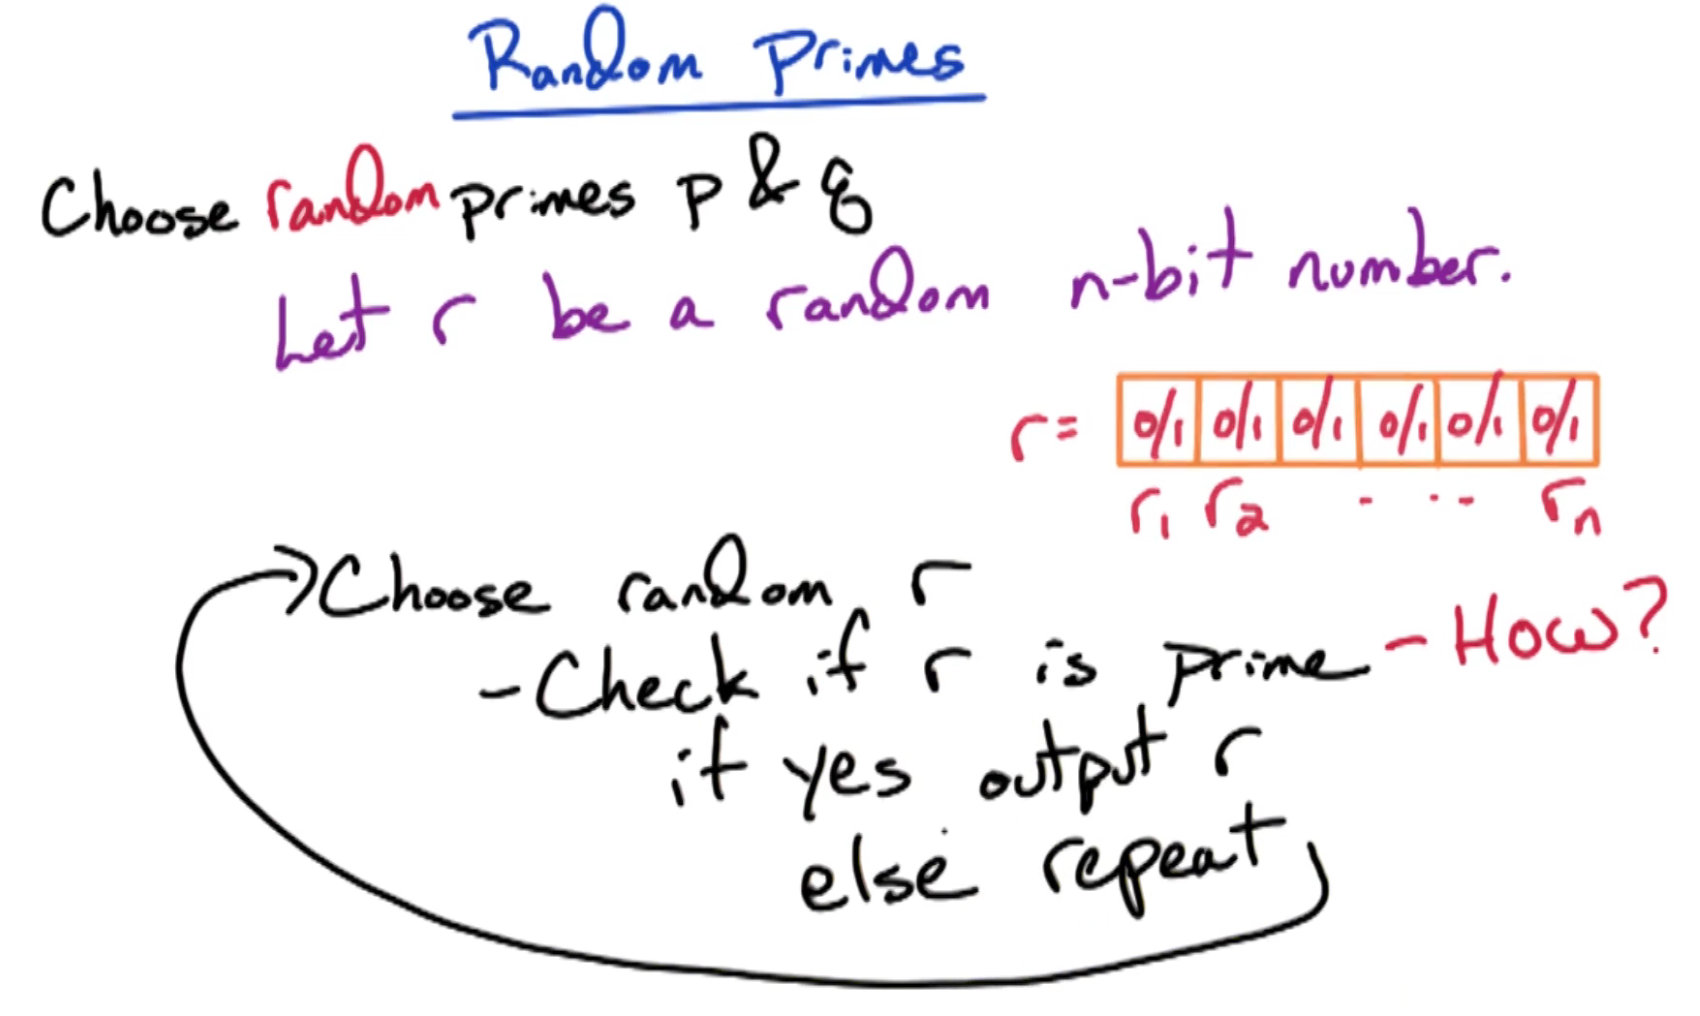 Random Primes
Choose random primes p & q
Let r be a random n-bit number.
r = 0/1 0/1 0/1 0/1 0/1 0/1
r1 r2 . . . rn
Choose random r
- Check if r is prime - How?
if yes output r
else repeat